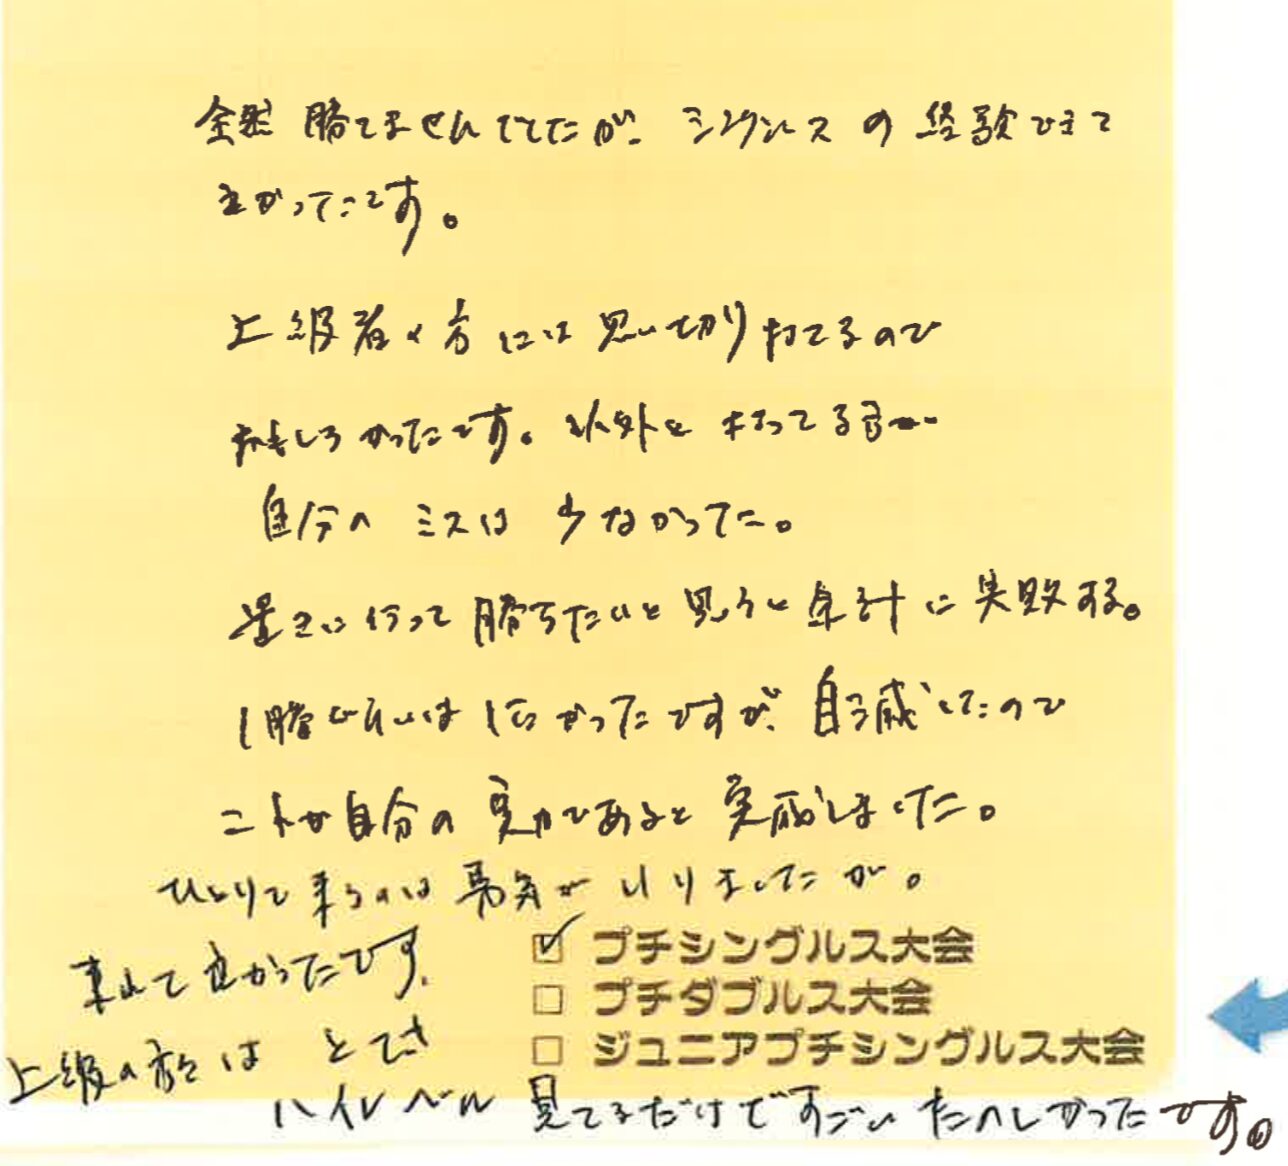 全然 勝てませんでしたが、シングルスの経験できて
良かったです。
上級者の方には思い切り打てるので
おもしろかったです。以外と
自分のミスは少なかった。
置きに行って勝ちたいと思うと余計に失敗する。
1勝ぐらいはしたかったですが、自滅したので
これが自分の実力であると実感しました。
ひとりで来るのは勇気がいりましたが。
来れて良かったです。
☑ プチシングルス大会
□ プチダブルス大会
□ ジュニアプチシングルス大会
上級の方は とても
ハイレベル 見てるだけですごい たのしかったです。